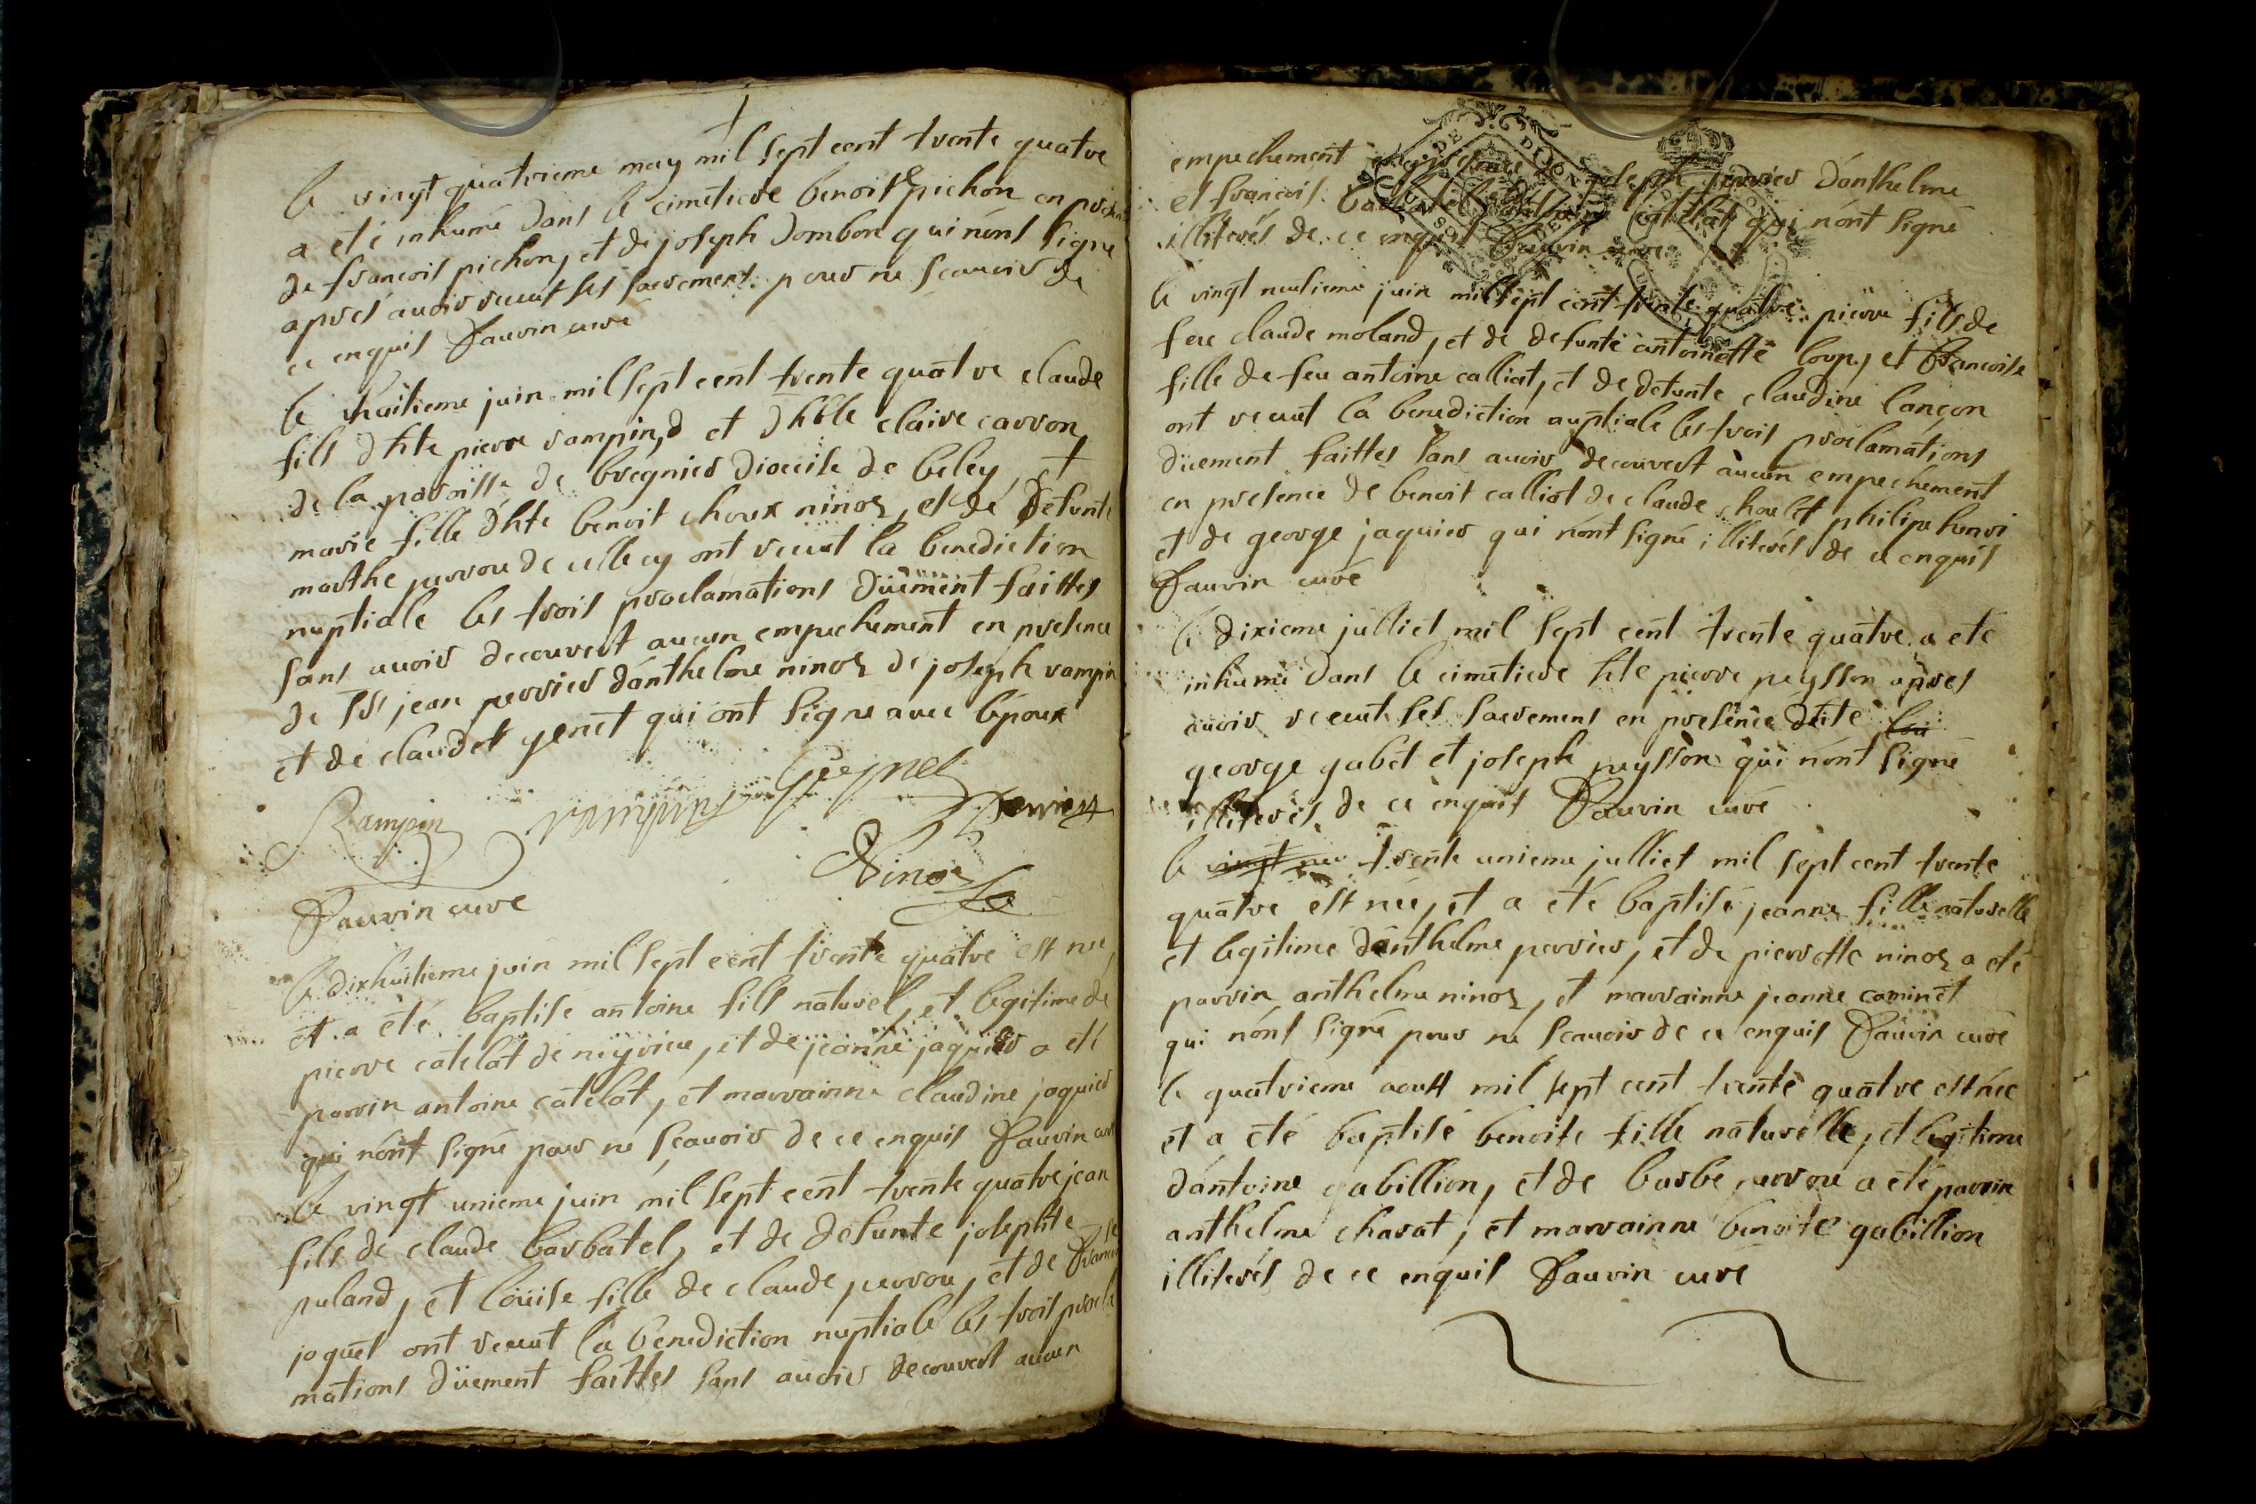 le vingt quatrieme may mil sept cent trente quatre
a eté inhumé dans le cimetiere benoiste pichon en presence
de francois pichon, et de joseph dombon qui nónt signé
aprés auoir receut ses sacrement pour ne scauoir de
ce enquis Dauvin curé
le huitieme juin mil sept cent trente quatre claude
fils dhte pierre rampin, et dhble claire carron
de la paroisse de bregnier diocese de beley, et
marie fille dhte benoit choux ninoz, et de defunte
marthe perrou de cellecy ont receut la benediction
nuptiale les trois proclamations düement faittes
sans auoir decouvert aucun empechement en presence
de Sr jean perrier dánthelme ninoz de joseph rampin
et de claudet genet qui ont signe auec lépoux
Rampin
Perrier
Ninoz
Dauvin curé
le dixhuitieme juin mil sept cent trente quatre est né,
et a été baptisé antoine fils naturel, et legitime de
pierre catelat de neyrieu, et de jeanne jaquier a eté
parrin antoine catelat, et marrainne claudine jaquier
qui nónt signé pour ne scauoir de ce enquis Dauvin curé
le vingt unieme juin mil sept cent trente quatre jean
fils de claude barbatel, et de defunte josephte
puland, et loüise fille de claude perrou, et de francoise
joquet ont receut la benediction nuptiale les trois procla
mations düement faittes sans auoir decouvert aucun
empechement en presence de joseph perrier dánthelme
et francois catelat qui nónt signé
illiterés de ce enquis Dauvin curé
le vingt neufieme juin mil sept cent trente quatre pierre fils de
feu claude moland, et de defunte antoinette loup, et francoise
fille de feu antoine calliat, et de defunte claudine lançon
ont receut la benediction nuptiale les trois proclamations
düement faittes sans auoir decouvert aucun empechement
en presence de benoit calliot de claude choulet philipe hunri
et de george jaquier qui nónt signé illiterés de ce enquis
Dauvin curé
le dixieme julliet mil sept cent trente quatre a eté
inhumé dans le cimetiere hte pierre peysson apres
auoir receut ses sacrement en presence dhte
george gabet et joseph peysson qui nónt signé
illiterés de ce enquis Dauvin curé
le vingt neu trente unieme julliet mil sept cent trente
quatre est née, et a été baptisé jeanne fille naturelle
et legitime dánthelme perrier, et de pierrette ninoz a eté
parrin anthelme ninoz, et marrainne jeanne caminet
qui nónt signé pour ne scauoir de ce enquis Dauvin curé
le quatrieme aoust mil sept cent trente quatre est née
et a été baptisé benoite fille naturelle, et legitime
dántoine gabillion, et de barbe perrou a eté parrin
anthelme charat, et marrainne benoite gabillion
illiterés de ce enquis Dauvin curé